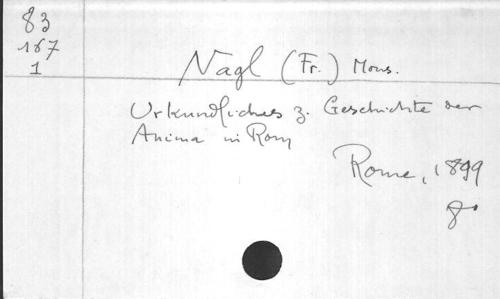 83
167
1
Nagl (Fr.) Mons.
Urkundliches z. Geschichte der
Anima in Rom
Rome, 1899
8°